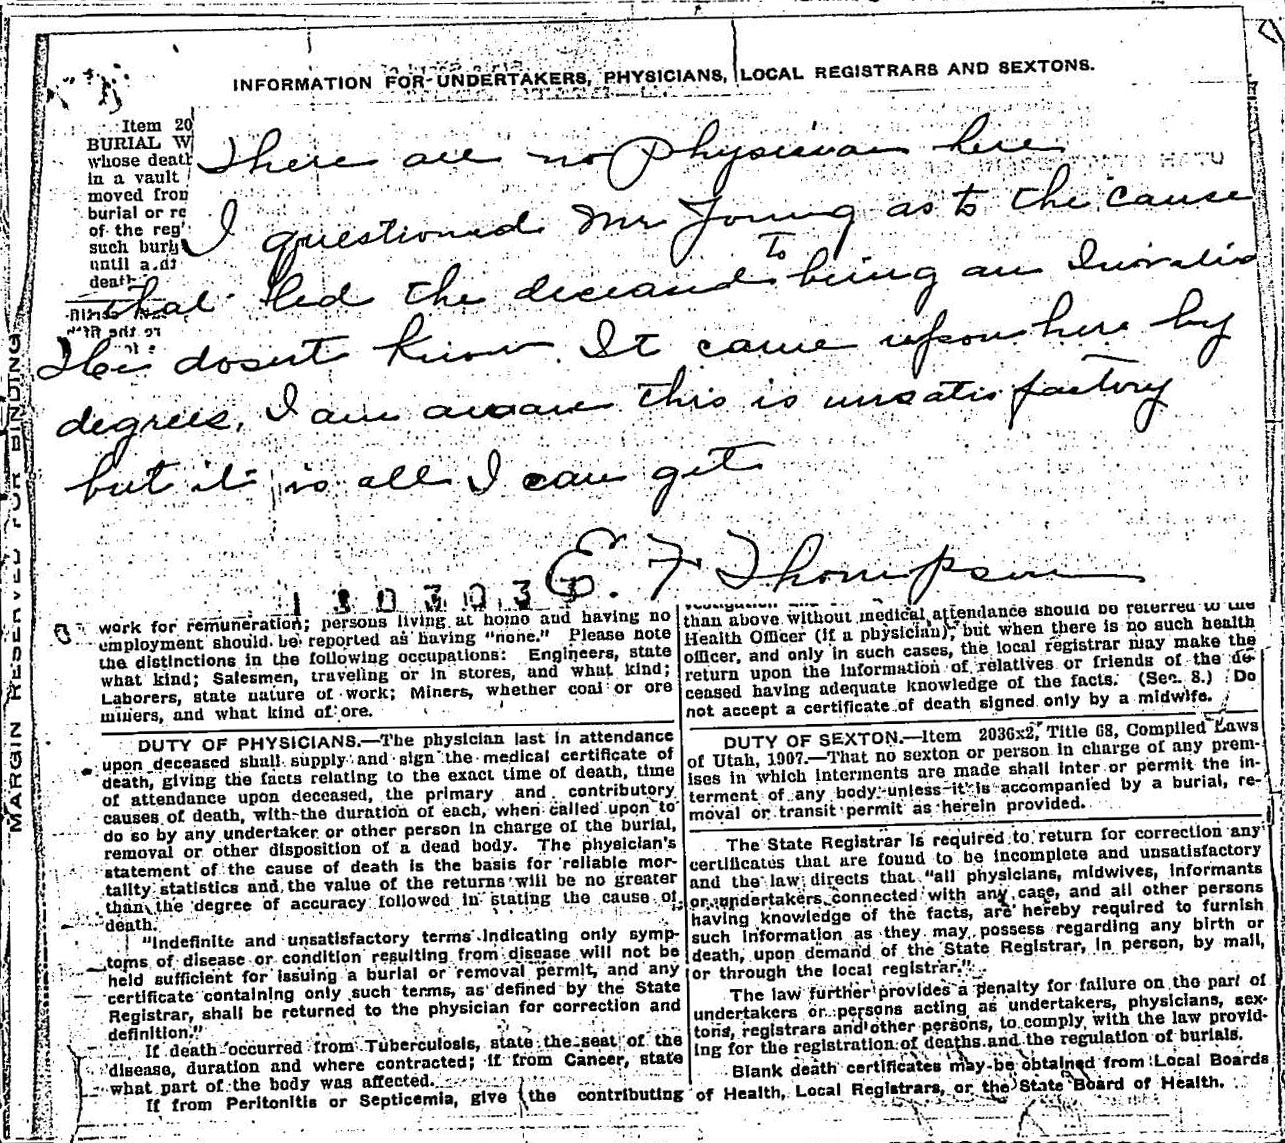 INFORMATION FOR UNDERTAKERS, PHYSICIANS, LOCAL REGISTRARS AND SEXTONS.
Item 20
BURIAL W
whose death
in a vault
moved from
burial or re
of the reg
such buri
until a di
death
There are no Physician here
I questioned Mr Young as to the cause
that led the deceased to being an Invalid
He dosent know. It came upon here by
degrees, I am aware this is unsatisfactory
but it is all I can get
E. F Thompson
MARGIN RESERVED FOR BINDING
work for remuneration; persons living at home and having no
employment should be reported as having "none." Please note
the distinctions in the following occupations: Engineers, state
what kind; Salesmen, traveling or in stores, and what kind;
Laborers, state nature of work; Miners, whether coal or ore
miners, and what kind of ore.
DUTY OF PHYSICIANS.—The physician last in attendance
upon deceased shall supply and sign the medical certificate of
death, giving the facts relating to the exact time of death, time
of attendance upon deceased, the primary and contributory
causes of death, with the duration of each, when called upon to
do so by any undertaker or other person in charge of the burial,
removal or other disposition of a dead body. The physician's
statement of the cause of death is the basis for reliable mor-
tality statistics and the value of the returns will be no greater
than the degree of accuracy followed in stating the cause of
death.
"Indefinite and unsatisfactory terms indicating only symp-
toms of disease or condition resulting from disease will not be
held sufficient for issuing a burial or removal permit, and any
certificate containing only such terms, as defined by the State
Registrar, shall be returned to the physician for correction and
definition."
If death occurred from Tuberculosis, state the seat of the
disease, duration and where contracted; if from Cancer, state
what part of the body was affected.
If from Peritonitis or Septicemia, give the contributing
than above without medical attendance should be referred to the
Health Officer (if a physician), but when there is no such health
officer, and only in such cases, the local registrar may make the
return upon the information of relatives or friends of the de-
ceased having adequate knowledge of the facts. (Sec. 8.) Do
not accept a certificate of death signed only by a midwife.
DUTY OF SEXTON.—Item 2036x2, Title 68, Compiled Laws
of Utah, 1907.—That no sexton or person in charge of any prem-
ises in which interments are made shall inter or permit the in-
terment of any body unless it is accompanied by a burial, re-
moval or transit permit as herein provided.
The State Registrar is required to return for correction any
certificates that are found to be incomplete and unsatisfactory
and the law directs that "all physicians, midwives, informants
or undertakers connected with any case, and all other persons
having knowledge of the facts, are hereby required to furnish
such information as they may possess regarding any birth or
death, upon demand of the State Registrar, in person, by mail,
or through the local registrar."
The law further provides a penalty for failure on the part of
undertakers or persons acting as undertakers, physicians, sex-
tons, registrars and other persons, to comply with the law provid-
ing for the registration of deaths and the regulation of burials.
Blank death certificates may be obtained from Local Boards
of Health, Local Registrars, or the State Board of Health.